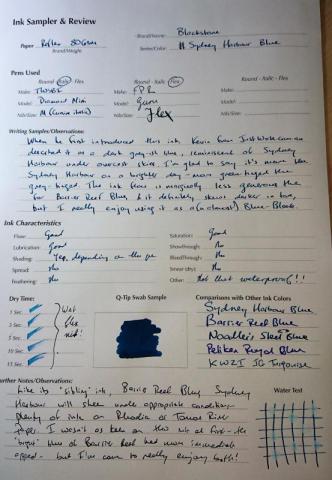 Ink Sampler & Review
Brand/Name: Blackstone
Paper Reflex 80Gsm Series/Color: # Sydney Harbour Blue
Brand/Weight
Pens Used
Round - Italic - Flex Round - Italic - Flex Round - Italic - Flex
Make: TWSBI Make: FPR Make:
Model: Diamond Mini Model: Guru Model:
Nib/Size: M (Cursive italic) Nib/Size: Flex Nib/Size:
Writing Samples/Observations:
When he first introduced this ink, Kevin from Just Write
described it as a dark grey-ist blue, reminiscent of Sydney
Harbour under overcast skies. I'm glad to say it's more like
Sydney Harbour on a brighter day - more green-hued than
grey-hued. The ink flow is marginally less generous than
for Barrier Reef Blue, & it definitely skews darker in hue,
but I really enjoy using it as a(n almost) Blue-Black.
Ink Characteristics
Flow: Good Saturation: Good
Lubrication: Good Showthrough: No
Shading: Yep, depending on the pen Bleedthrough: No
Spread: No Smear (dry): No
Feathering: No Other: Not that waterproof!!
Dry Time: Q-Tip Swab Sample Comparisons with Other Ink Colors
1 Sec. Wet Sydney Harbour Blue
3 Sec. Flex Barrier Reef Blue
5 Sec. nib! Noodler's Steel Blue
10 Sec. Pelikan Royal Blue
15 Sec. KWZI IG Turquoise
Further Notes/Observations: Water Test
Like its "sibling" ink, Barrier Reef Blue, Sydney
Harbour will sheen under appropriate conditions -
plenty of ink on Rhodia or Tomoe River
Paper. I wasn't as keen on this ink at first - the
"bright" blue of Barrier Reef had more immediate
appeal - but I've come to really enjoy both!